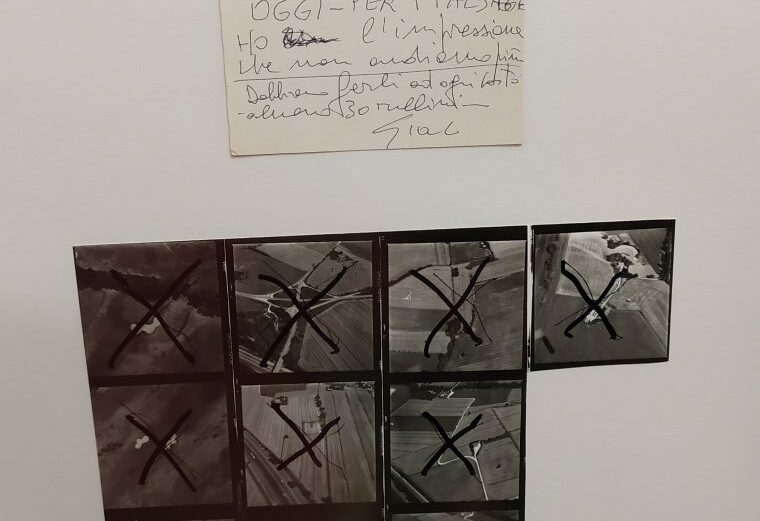 OGGI - PER I
HO l'impressione
che non andiamo più
Dobbiamo farli ad ogni costo
almeno 30 rullini -